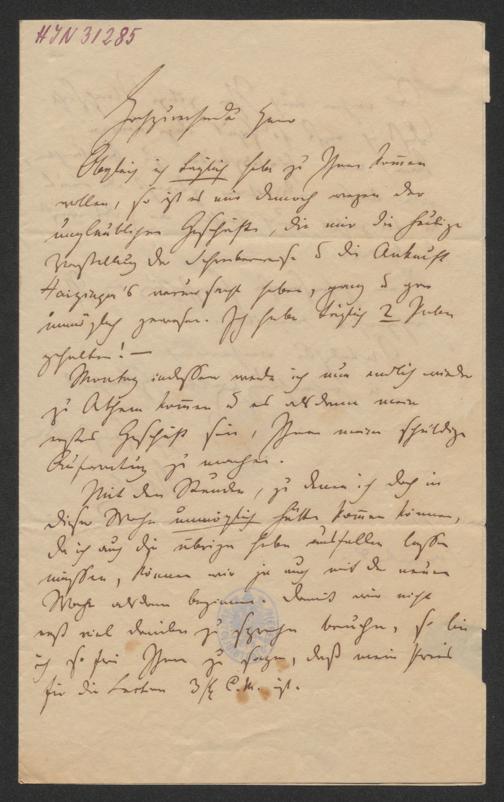 HIN 31285
Hochzuverehrender Herr
Obgleich ich täglich habe zu Ihnen kommen
wollen, so ist es mir dennoch wegen der
unglaublichen Geschäfte, die mir die heutige
Vorstellung der Schreiberwiese & die Ankunft
Haizinger's verursacht haben, ganz & gar
unmöglich gewesen. Ich habe täglich 2 Proben
gehalten! —
Montag indessen werde ich nun endlich wieder
zu Athem kommen & es alsdann mein
erstes Geschäft sein, Ihnen meine schuldige
Aufwartung zu machen.
Mit den Stunden, zu denen ich doch in
dieser Woche unmöglich hätte kommen können,
da ich auch die übrigen habe ausfallen lassen
müssen, können wir ja auch mit der neuen
Woche alsdann beginnen. Damit wir nicht
erst viel darüber zu sprechen brauchen, so bin
ich so frei Ihnen zu sagen, daß mein Preis
für die Lection 3 f C.M. ist.